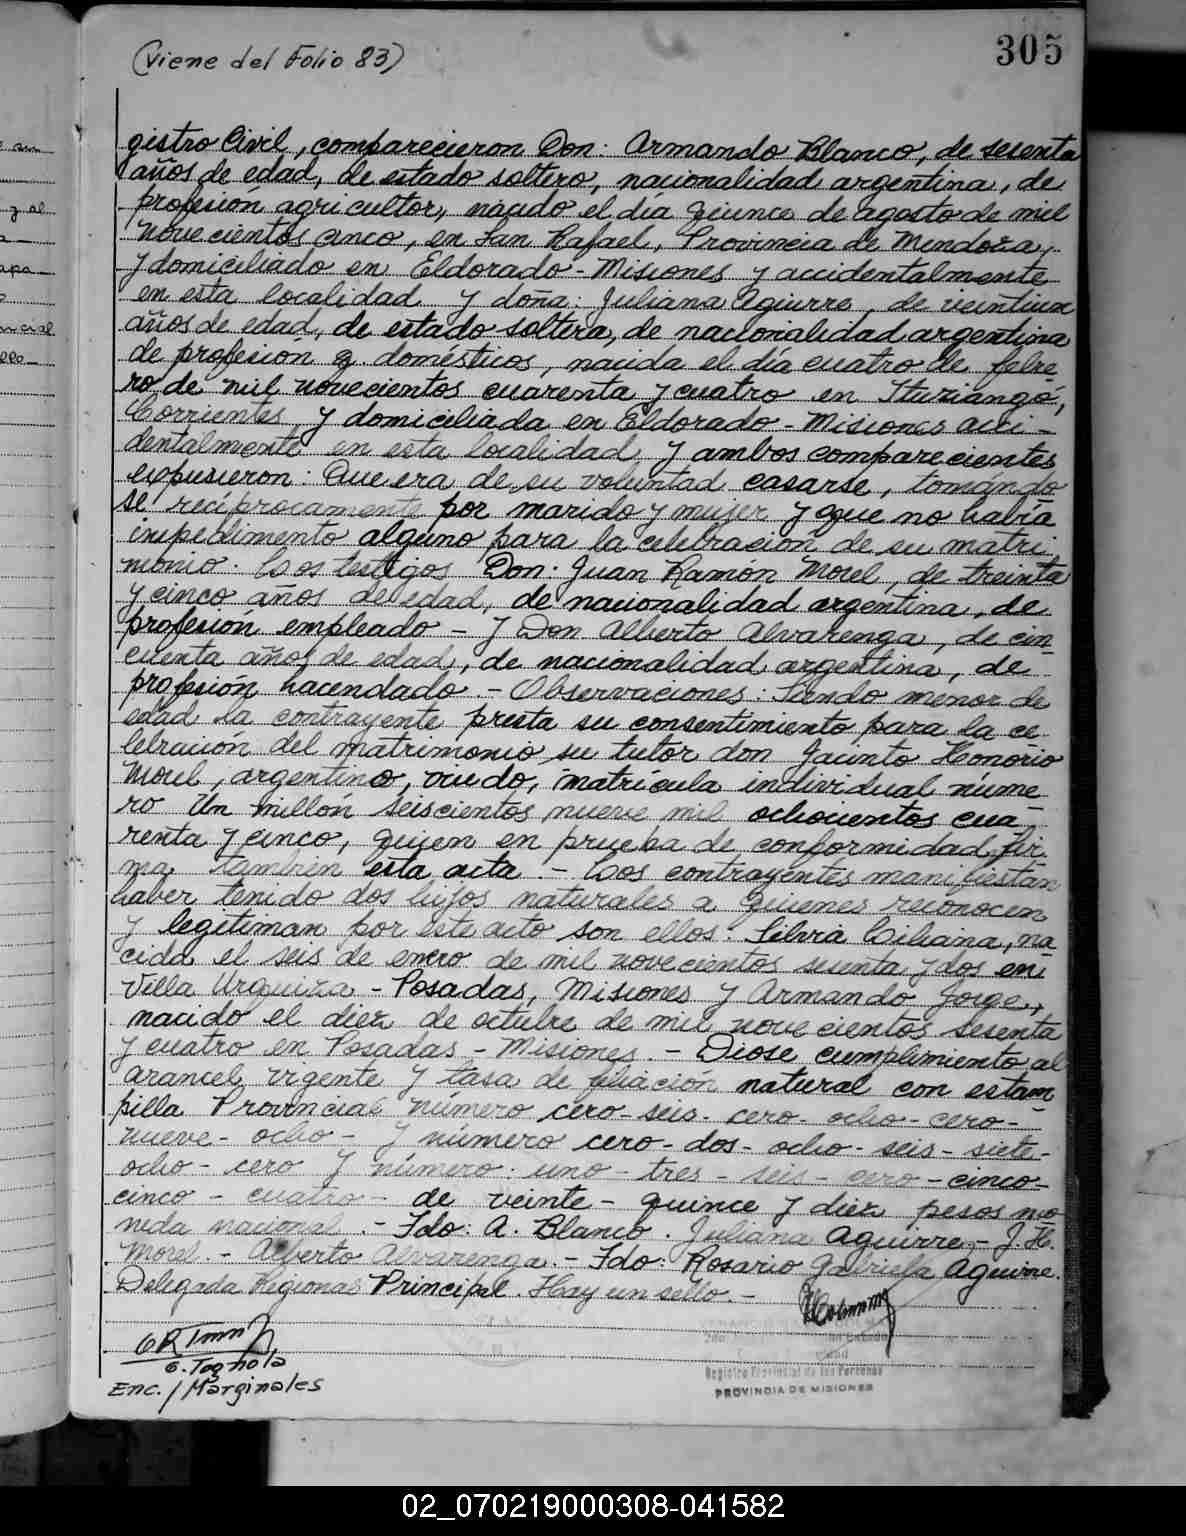 (Viene del Folio 83)
305
gistro Civil, comparecieron Don: Armando Blanco, de sesenta
años de edad, de estado soltero, nacionalidad argentina, de
profesión agricultor, nacido el día quince de agosto de mil
novecientos cinco, en San Rafael, Provincia de Mendoza,
y domiciliado en Eldorado - Misiones y accidentalmente
en esta localidad y doña: Juliana Aguirre, de veintiun
años de edad, de estado soltera, de nacionalidad argentina
de profesión q. domésticos, nacida el día cuatro de febre-
ro de mil novecientos cuarenta y cuatro en Ituziangó,
Corrientes y domiciliada en Eldorado - Misiones acci-
dentalmente en esta localidad y ambos comparecientes
expusieron: Que era de su voluntad casarse, tomando
se recíprocamente por marido y mujer y que no había
impedimento alguno para la celebración de su matri
monio. Los testigos Don: Juan Ramón Morel, de treinta
y cinco años de edad, de nacionalidad argentina, de
profesión empleado - y Don Alberto Alvarenga, de cin
cuenta años de edad, de nacionalidad argentina, de
profesión hacendado. - Observaciones: Siendo menor de
edad la contrayente presta su consentimiento para la ce
lebración del matrimonio su tutor don Jacinto Honorio
Morel, argentino, viudo, matrícula individual núme
ro Un millón seiscientos nueve mil ochocientos cua
renta y cinco, quien en prueba de conformidad fir-
ma también esta acta. - Los contrayentes manifiestan
haber tenido dos hijos naturales a quienes reconocen
y legitiman por este acto son ellos: Silvia Liliana, na
cida el seis de enero de mil novecientos sesenta y dos en
Villa Urquiza - Posadas, Misiones y Armando Jorge,
nacido el diez de octubre de mil novecientos sesenta
y cuatro en Posadas - Misiones. - Diose cumplimiento al
arancel vigente y tasa de filiación natural con estam
pilla Provincial número cero - seis - cero - ocho - cero -
nueve - ocho - y número cero - dos - ocho - seis - siete -
ocho - cero y número: uno - tres - seis - cero - cinco -
cinco - cuatro - de veinte - quince y diez pesos mo
neda nacional. - Fdo: A. Blanco. Juliana Aguirre - J. H.
Morel. - Alberto Alvarenga. - Fdo: Rosario Gabriela Aguirre.
Delegada Regional Principal. Hay un sello. -
G. Tognola
Enc. / Marginales
Registro Provincial de las Personas
PROVINCIA DE MISIONES
02_070219000308-041582